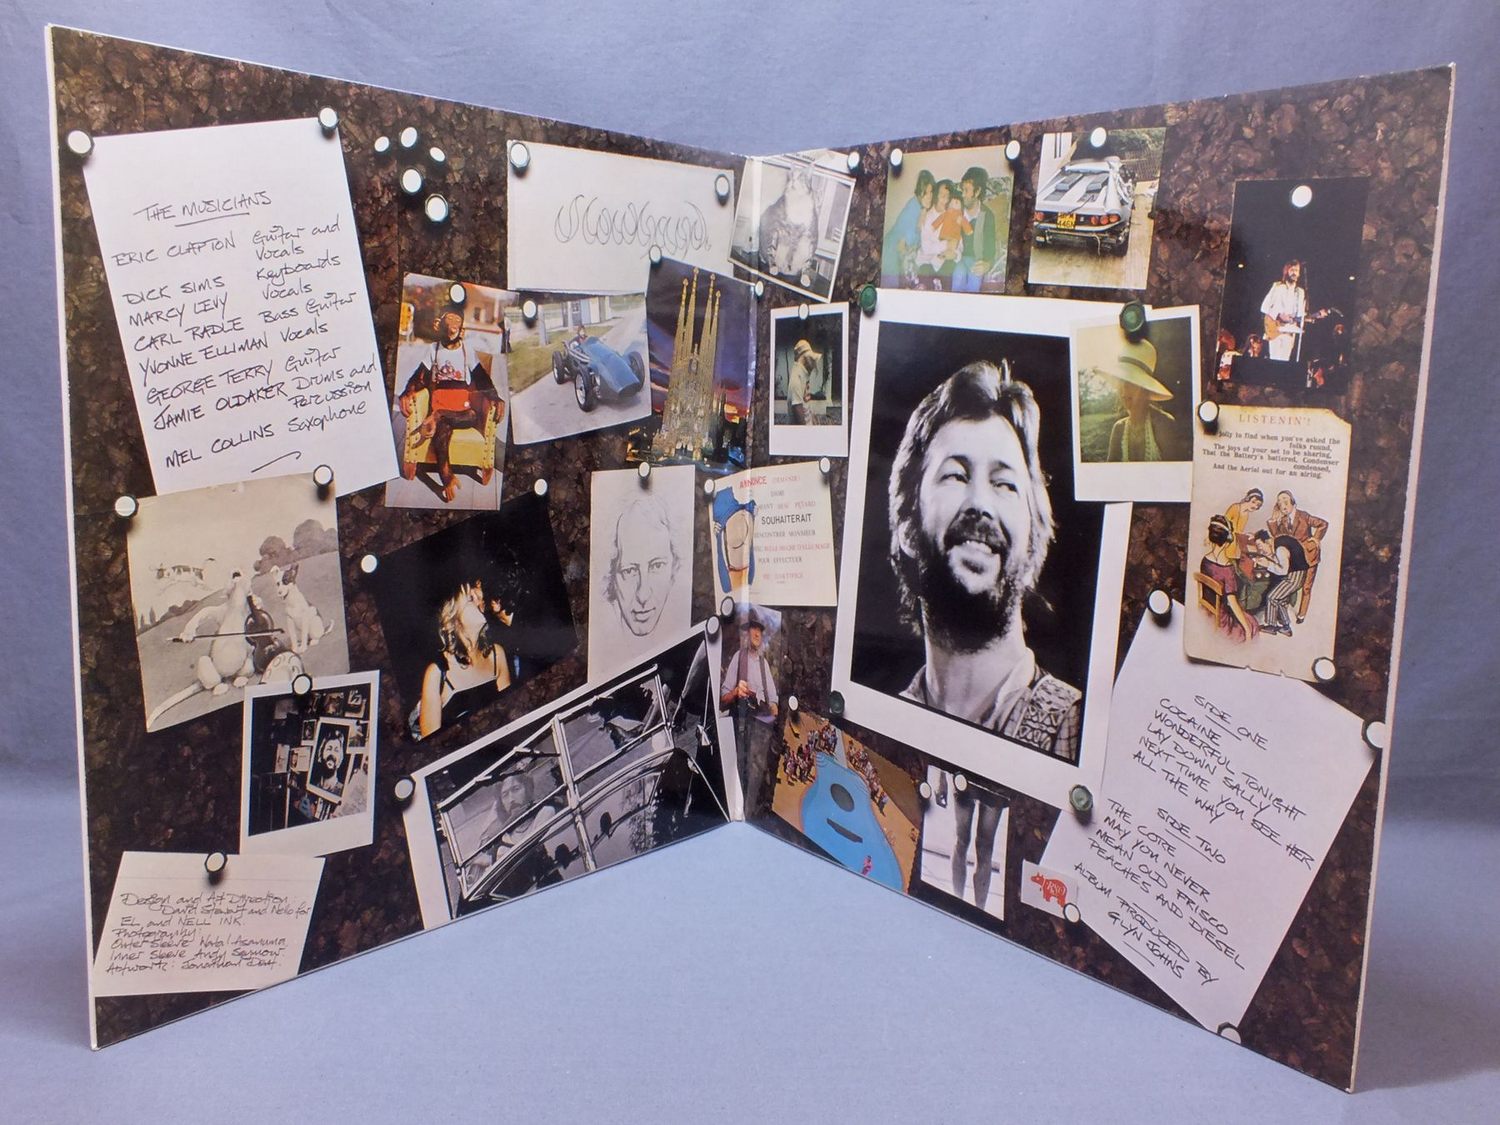 THE MUSICIANS
ERIC CLAPTON Guitar and
Vocals
DICK SIMS Keyboards
MARCY LEVY Vocals
CARL RADLE Bass Guitar
YVONNE ELLIMAN Vocals
GEORGE TERRY Guitar
JAMIE OLDAKER Drums and
Percussion
MEL COLLINS Saxophone
Design and Art Direction
David Stewart and Nello for
EL and NELL INK.
Photography:
Outer Sleeve
Inner Sleeve Andy Seymour.
Artwork: Jonathan
ANNONCE
DAME
SOUHAITERAIT
RENCONTRER MONSIEUR
POUR EFFECTUER
LISTENIN'!
jolly to find when you've asked the
folks round,
The joys of your set to be sharing,
That the Battery's battered, Condenser
condensed,
And the Aerial out for an airing.
SIDE ONE
COCAINE
WONDERFUL TONIGHT
LAY DOWN SALLY
NEXT TIME YOU SEE HER
ALL THE WAY
SIDE TWO
THE CORE
MAY YOU NEVER
MEAN OLD FRISCO
PEACHES AND DIESEL
ALBUM PRODUCED BY
GLYN JOHNS
RSO